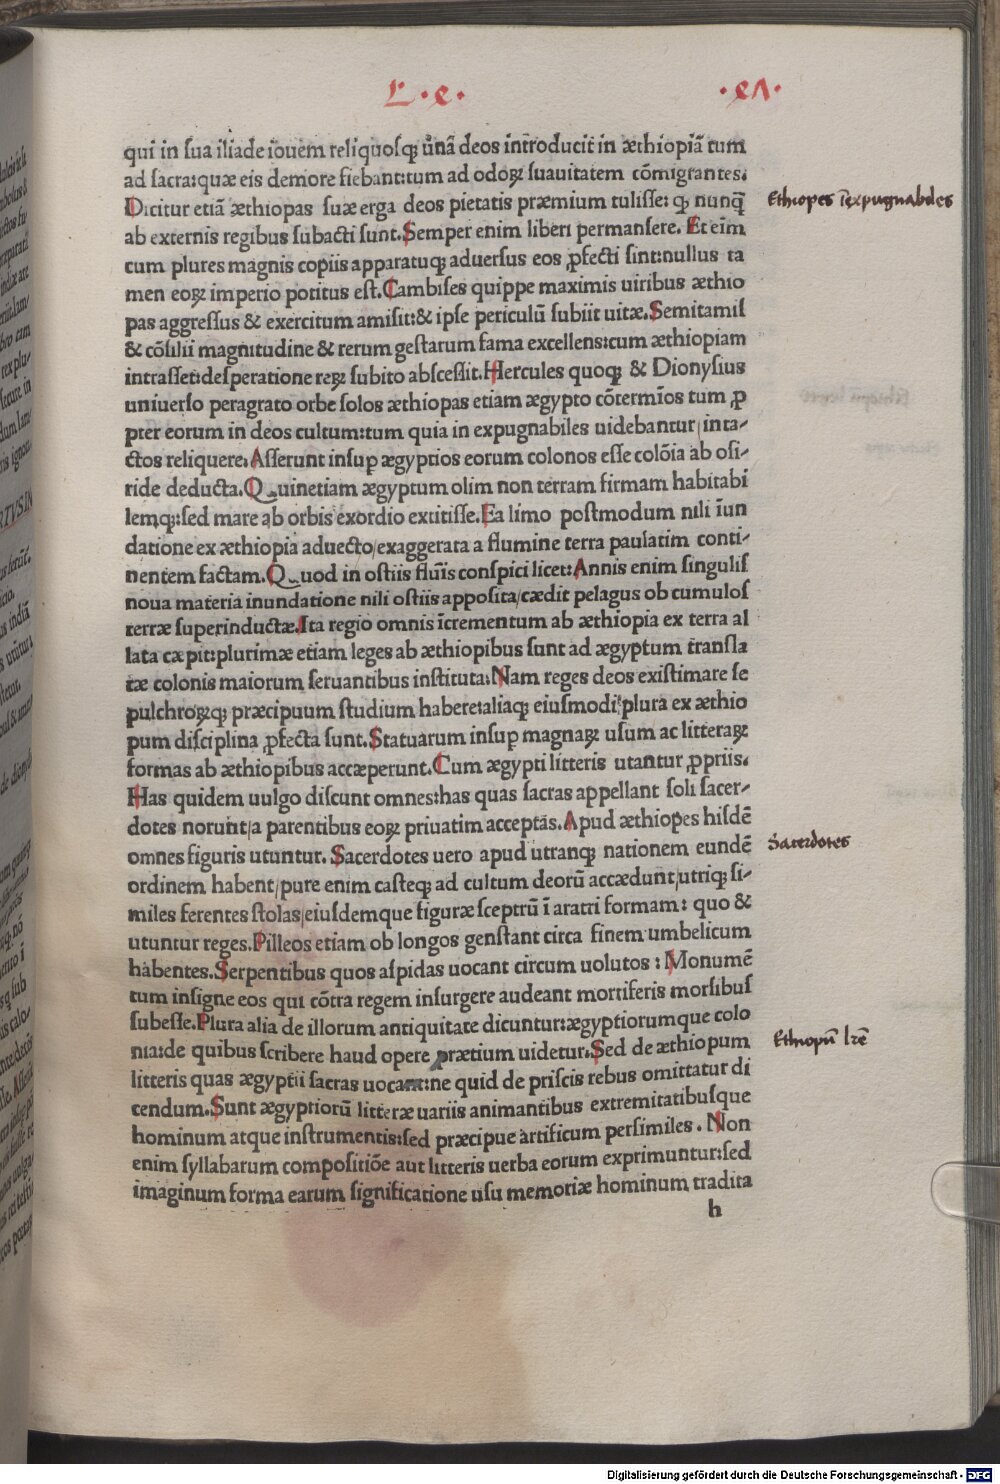 L. e.
qui in ſua iliade iouem reliquoſqꝫ unā deos introducit in æthiopiā tum
ad ſacra: quæ eis demore fiebant: tum ad odoꝝ ſuauitatem cōmigrantes.
Dicitur etiā æthiopas ſuæ erga deos pietatis præmium tuliſſe: ꝙ nunꝙ̄
ab externis regibus ſubacti ſunt. Semper enim liberi permanſere. Et eīm
cum plures magnis copiis apparatuqꝫ aduerſus eos ꝓfecti ſint: nullus ta
men eoꝝ imperio potitus eſt. Cambiſes quippe maximis uiribus æthio
pas aggreſſus & exercitum amiſit: & ipſe periculū ſubiit uitæ. Semitamiſ
& cōſilii magnitudine & rerum geſtarum fama excellens: cum æthiopiam
intraſſet: deſperatione reꝝ ſubito abſceſſit. Hercules quoqꝫ & Dionyſius
uniuerſo peragrato orbe ſolos æthiopas etiam ægypto cōtermīos tum ꝓ
pter eorum in deos cultum: tum quia in expugnabiles uidebantur / inta-
ctos reliquere. Aſſerunt inſuꝑ ægyptios eorum colonos eſſe colōia ab oſi-
ride deducta. Quinetiam ægyptum olim non terram firmam habitabi
lemqꝫ: ſed mare ab orbis exordio extitiſſe. Ea limo poſtmodum nili īun
datione ex æthiopia aduecto / exaggerata a flumine terra paulatim conti-
nentem factam. Quod in oſtiis fluīs conſpici licet: Annis enim ſinguliſ
noua materia inundatione nili oſtiis appoſita / cædit pelagus ob cumuloſ
terræ ſuperinductæ. Ita regio omnis īcrementum ab æthiopia ex terra al
lata cæpit: plurimæ etiam leges ab æthiopibus ſunt ad ægyptum tranſla
tæ colonis maiorum ſeruantibus inſtituta: Nam reges deos exiſtimare ſe
pulchroꝝqꝫ præcipuum ſtudium habere: aliaqꝫ eiuſmodi plura ex æthio
pum diſciplina ꝓfecta ſunt. Statuarum inſuꝑ magnaꝝ uſum ac litteraꝝ
formas ab æthiopibus accæperunt. Cum ægypti litteris utantur ꝓpriis.
Has quidem uulgo diſcunt omnes: has quas ſacras appellant ſoli ſacer-
dotes norunt / a parentibus eoꝝ priuatim acceptas. Apud æthiopes hiſdē
omnes figuris utuntur. Sacerdotes uero apud utranqꝫ nationem eundē
ordinem habent / pure enim caſteqꝫ ad cultum deorū accædunt / utriqꝫ ſi-
miles ferentes ſtolas / eiuſdemque figuræ ſceptrū ī aratri formam: quo &
utuntur reges. Pilleos etiam ob longos genſtant circa finem umbelicum
habentes. Serpentibus quos aſpidas uocant circum uolutos: Monumē
tum inſigne eos qui cōtra regem inſurgere audeant mortiferis morſibuſ
ſubeſſe. Plura alia de illorum antiquitate dicuntur: ægyptiorumque colo
nia: de quibus ſcribere haud opere prætium uidetur. Sed de æthiopum
litteris quas ægyptii ſacras uocant: ne quid de priſcis rebus omittatur di
cendum. Sunt ægyptiorū litteræ uariis animantibus extremitatibuſque
hominum atque inſtrumentis: ſed præcipue artificum perſimiles. Non
enim ſyllabarum compoſitiōe aut litteris uerba eorum exprimuntur: ſed
imaginum forma earum ſignificatione uſu memoriæ hominum tradita
h
Ethiopes īexpugnabiles
Sacerdotes
Ethiopū lr̄e
Digitalisierung gefördert durch die Deutsche Forschungsgemeinschaft - DFG